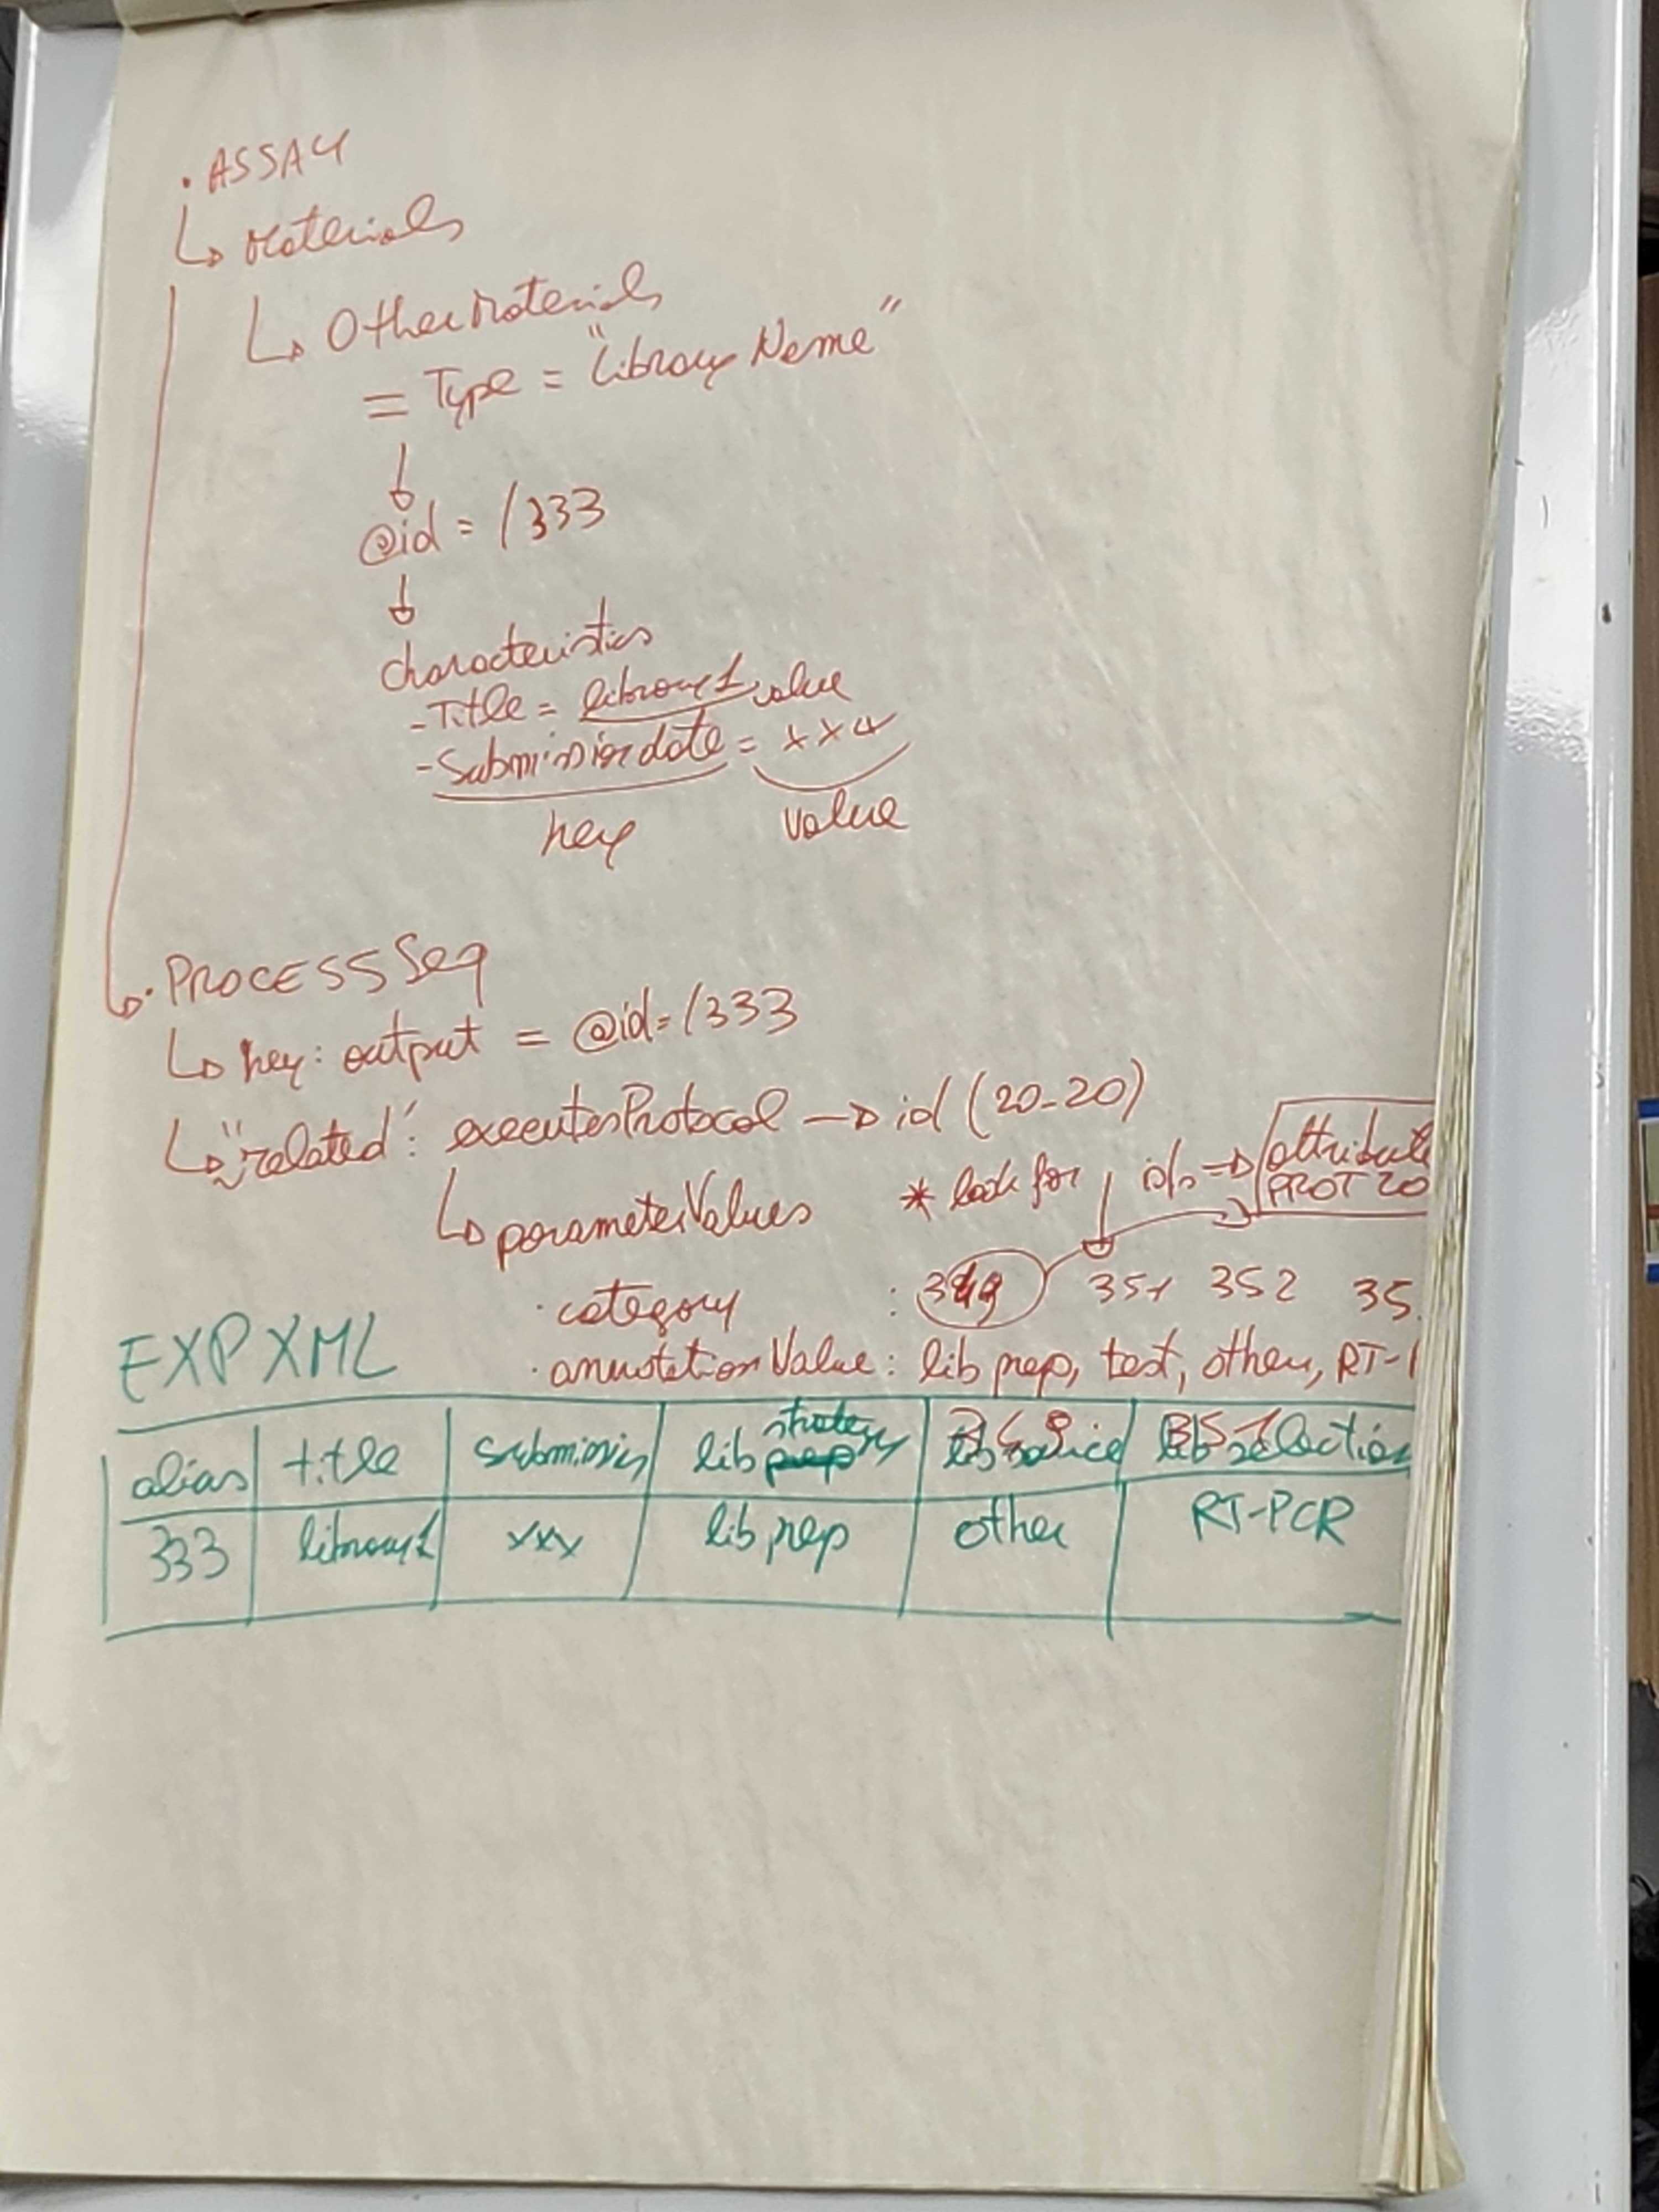 . ASSAY
↳ Materials
↳ OtherMaterials
= Type = "Library Name"
↓
@id = /333
↓
characteristics
- Title = library1 value
- Submission date = xxx
key value
. PROCESS Seq
↳ key: output = @id=/333
↳ "related": executesProtocol → id (20-20)
↳ parameterValues * look for ↓ ids → attribute
PROT 20
. category : 349 351 352 35
. annotationValue: lib prep, test, other, RT-
EXP XML
alias title submission lib strategy lib source lib selection
333 library1 xxx lib prep other RT-PCR